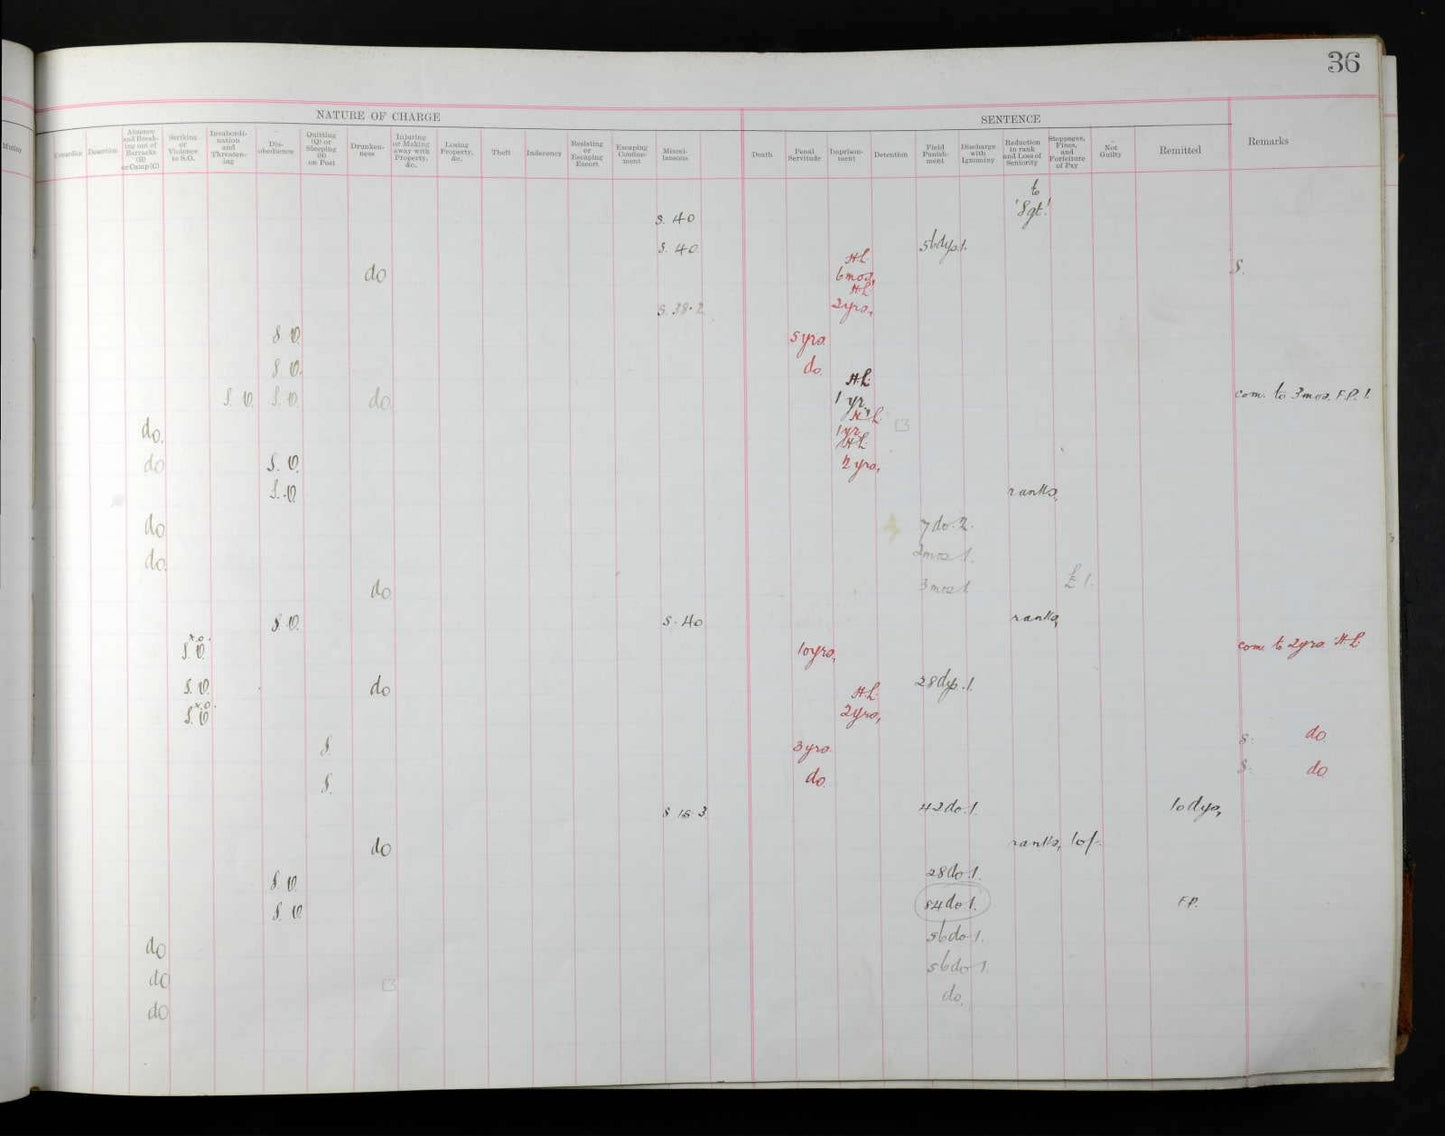 36
NATURE OF CHARGE
SENTENCE
Mutiny
Cowardice
Desertion
Absence and Breaking out of Barracks (B) or Camp (C)
Striking or Violence to S.O.
Insubordination and Threatening
Disobedience
Quitting (Q) or Sleeping (S) on Post
Drunkenness
Injuring or Making away with Property, &c.
Losing Property, &c.
Theft
Indecency
Resisting or Escaping Escort
Escaping Confinement
Miscellaneous
Death
Penal Servitude
Deprisonment
Detention
Field Punishment
Discharge with Ignominy
Reduction in rank and Loss of Seniority
Stoppages, Fines, and Forfeiture of Pay
Not Guilty
Remitted
Remarks
to
S. 40 'Sgt.'
S. 40 56dys.1.
do H.L. 6mos, S.
S. 38.2 H.L. 2yrs,
S. O. 5yrs.
S. O. do
S. O. S. O. do H.L. 1 yr, com. to 3mos. F.P. 1.
do. H.L. 1yr.
do S. O. H.L. 2 yrs,
S. O. ranks,
do 7do.2.
do. 2mos 1.
do 3mos 1 £1.
S. O. S. 40 ranks,
x.o. S. O. 10yrs, com. to 2yrs. H.L.
S. O. do 28dys.1.
x.o. S. O. H.L. 2yrs,
S. 3yrs. S. do
S. do. S. do
S 18 3 42do.1. 10dys,
do ranks, 10/-
S. O. 28do.1.
S. O. 84do1. F.P.
do 56do1.
do 56do1.
do do.